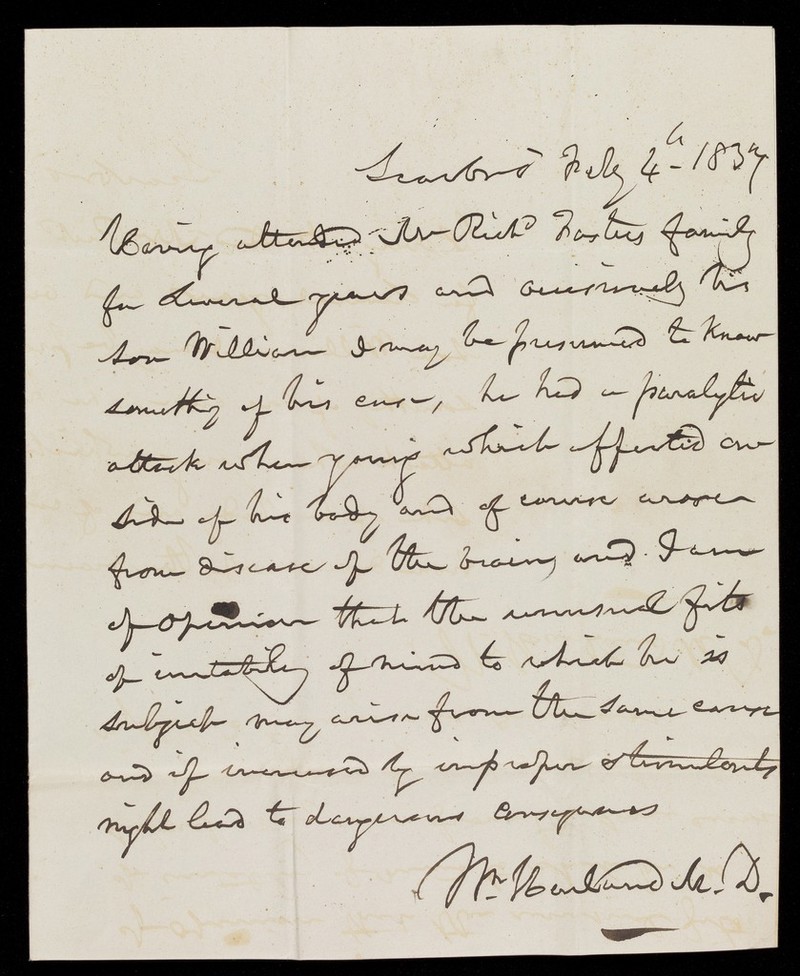 Scarbro' Feby 4th 1837
Having attended Mr Richd Fosters family
for several years and occasionally his
son William I may be presumed to know
something of his case, he had a paralytic
attack when young which affected one
side of his body and of course arose
from disease of the brain, and I am
of opinion that the unusual fits
of irritability of mind to which he is
subject may arise from the same cause
and if increased by improper stimulants
might lead to dangerous consequences
Wm Harland M.D.